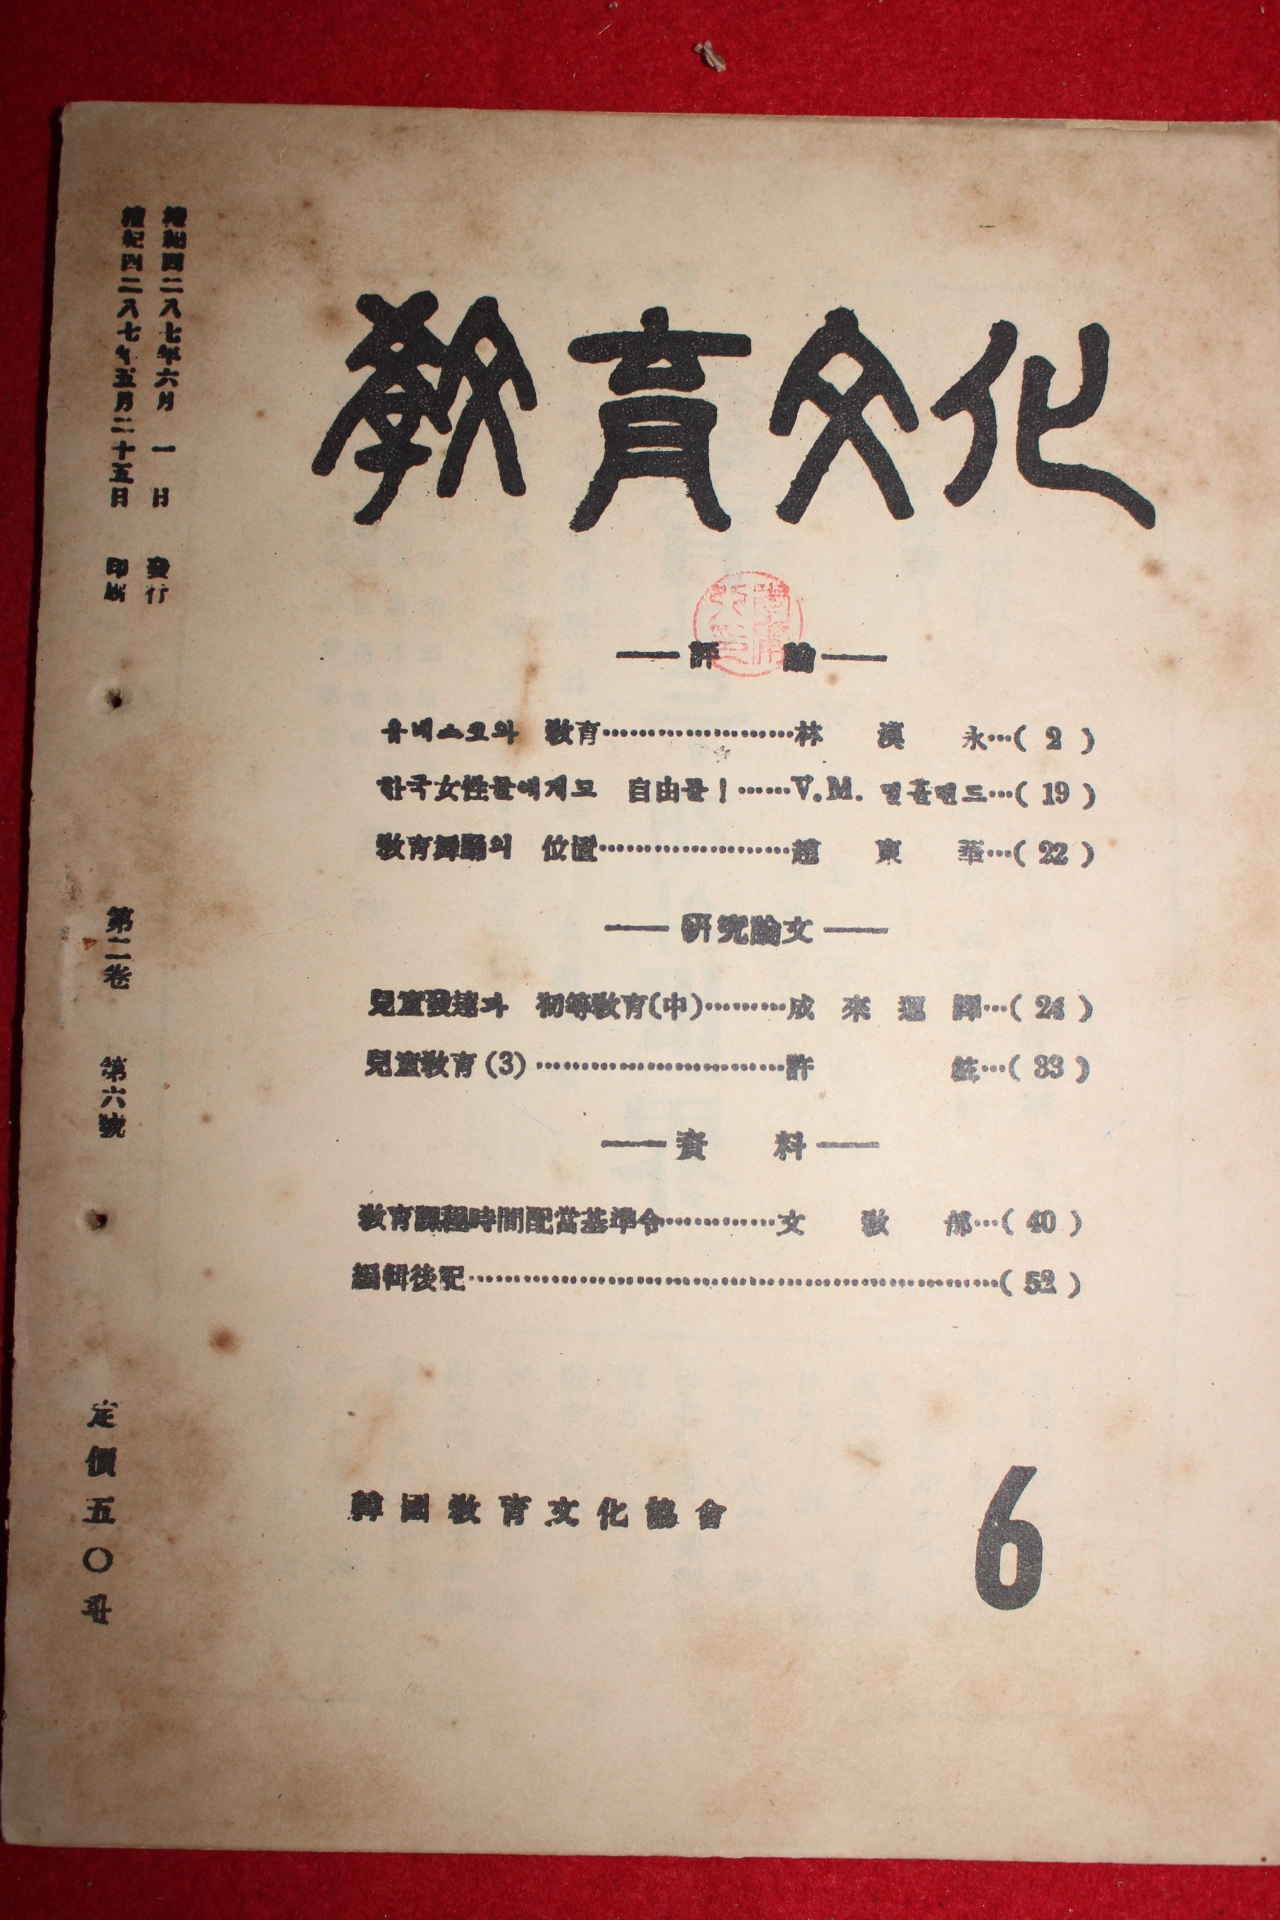 檀紀四二八七年六月 一 日 發行
檀紀四二八七年五月二十五日 印刷
第二卷 第六號
定價五〇환
教育文化
── 評 論 ──
유네스코와 教育…………………林 漢 永…( 2 )
한국女性들에게도 自由를!……V.M. …( 19 )
教育舞踊의 位置…………………趙 東 華…( 22 )
── 研究論文 ──
兒童發達과 初等教育(中)………成 來 運 譯…( 24 )
兒童教育(3)………………………許 鉉…( 33 )
── 資 料 ──
教育課程時間配當基準令…………文 教 部…( 40 )
編輯後記……………………………………………………( 52 )
韓國教育文化協會
6